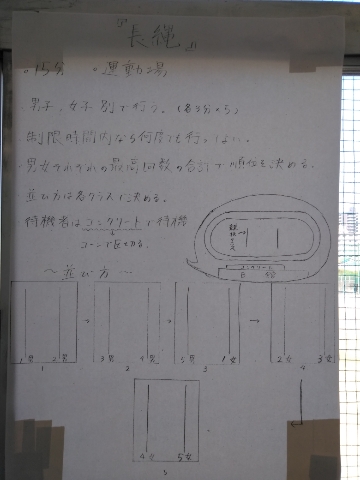 『長縄』
。15分 。運動場
・男子、女子別で行う。(各5分×5)
・制限時間内なら何度でも行ってよい。
・男女それぞれの最高回数の合計で順位を決める。
・並び方は各クラスで決める。
待機者はコンクリートで待機
コーンで
コンクリート
〜並び方〜
1男 2男 → 3男 4男 → 5男 1女 → 2女 3女
1 2 3 4
4女 5女
5